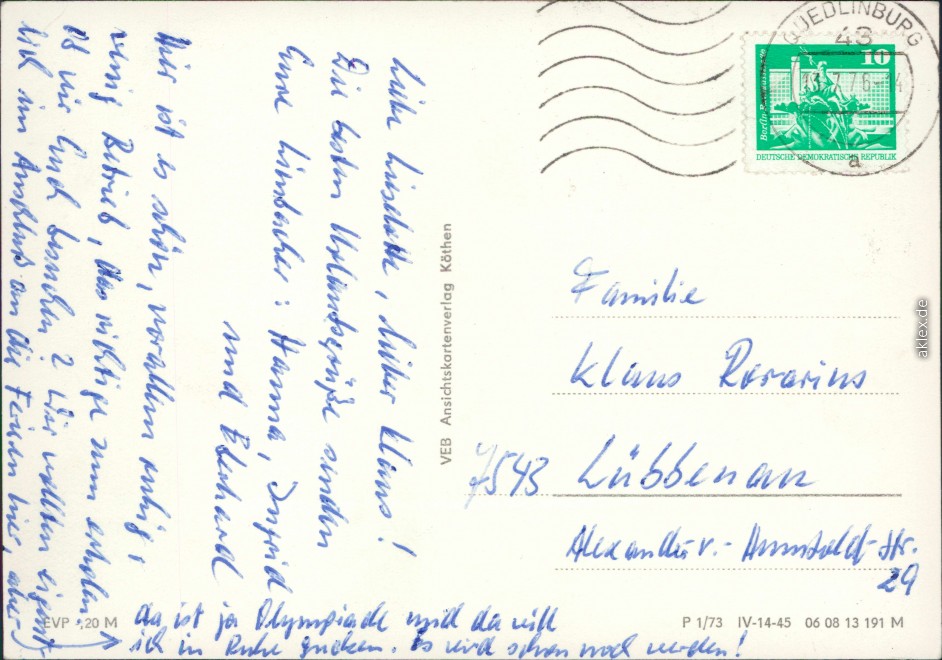 Liebe Liselotte, lieber Klaus!
Die besten Urlaubsgrüße senden
Eure Lissacher: Hanna, Ingrid
und Eberhard
Hier ist es schön, vorallem ruhig,
wenig Betrieb, das richtige zum erholen.
Ob wir Euch besuchen? Wir wollten eigentl.
sich im Anschluß an die Ferien hier, aber
da ist ja Olympiade und da will
ich in Ruhe gucken. Es wird schon noch werden!
VEB Ansichtskartenverlag Köthen
QUEDLINBURG
43
a
10
DEUTSCHE DEMOKRATISCHE REPUBLIK
Familie
Klaus Rorarius
7543 Lübbenau
Alexander v.- Humboldt-Str.
29
EVP -,20 M
P 1/73 IV-14-45 06 08 13 191 M
aklex.de